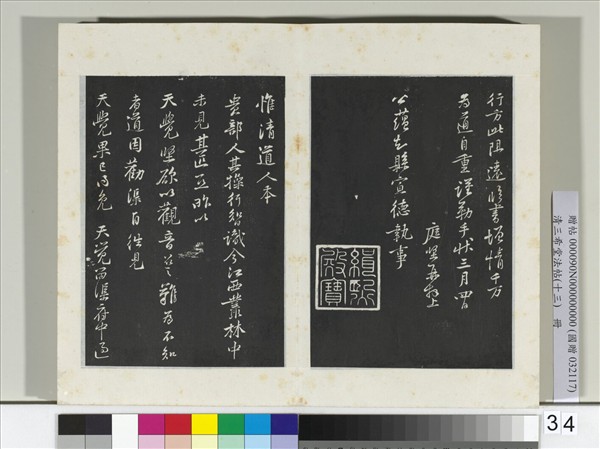 行方此阻遠臨書增情千万
為道自重謹勒手狀三月四日
庭堅再拜上
公蘊知縣宣德執事
惟清道人本
貴部人其操行智識今江西叢林中
未見其匹亞昨以
天覺堅欲以觀音召之難為不知
者道因勸渠自往見
天覺果已得免天覺留渠府中過
贈帖 000090N000000000 (國贈 032117)
清三希堂法帖(十三) 冊
34